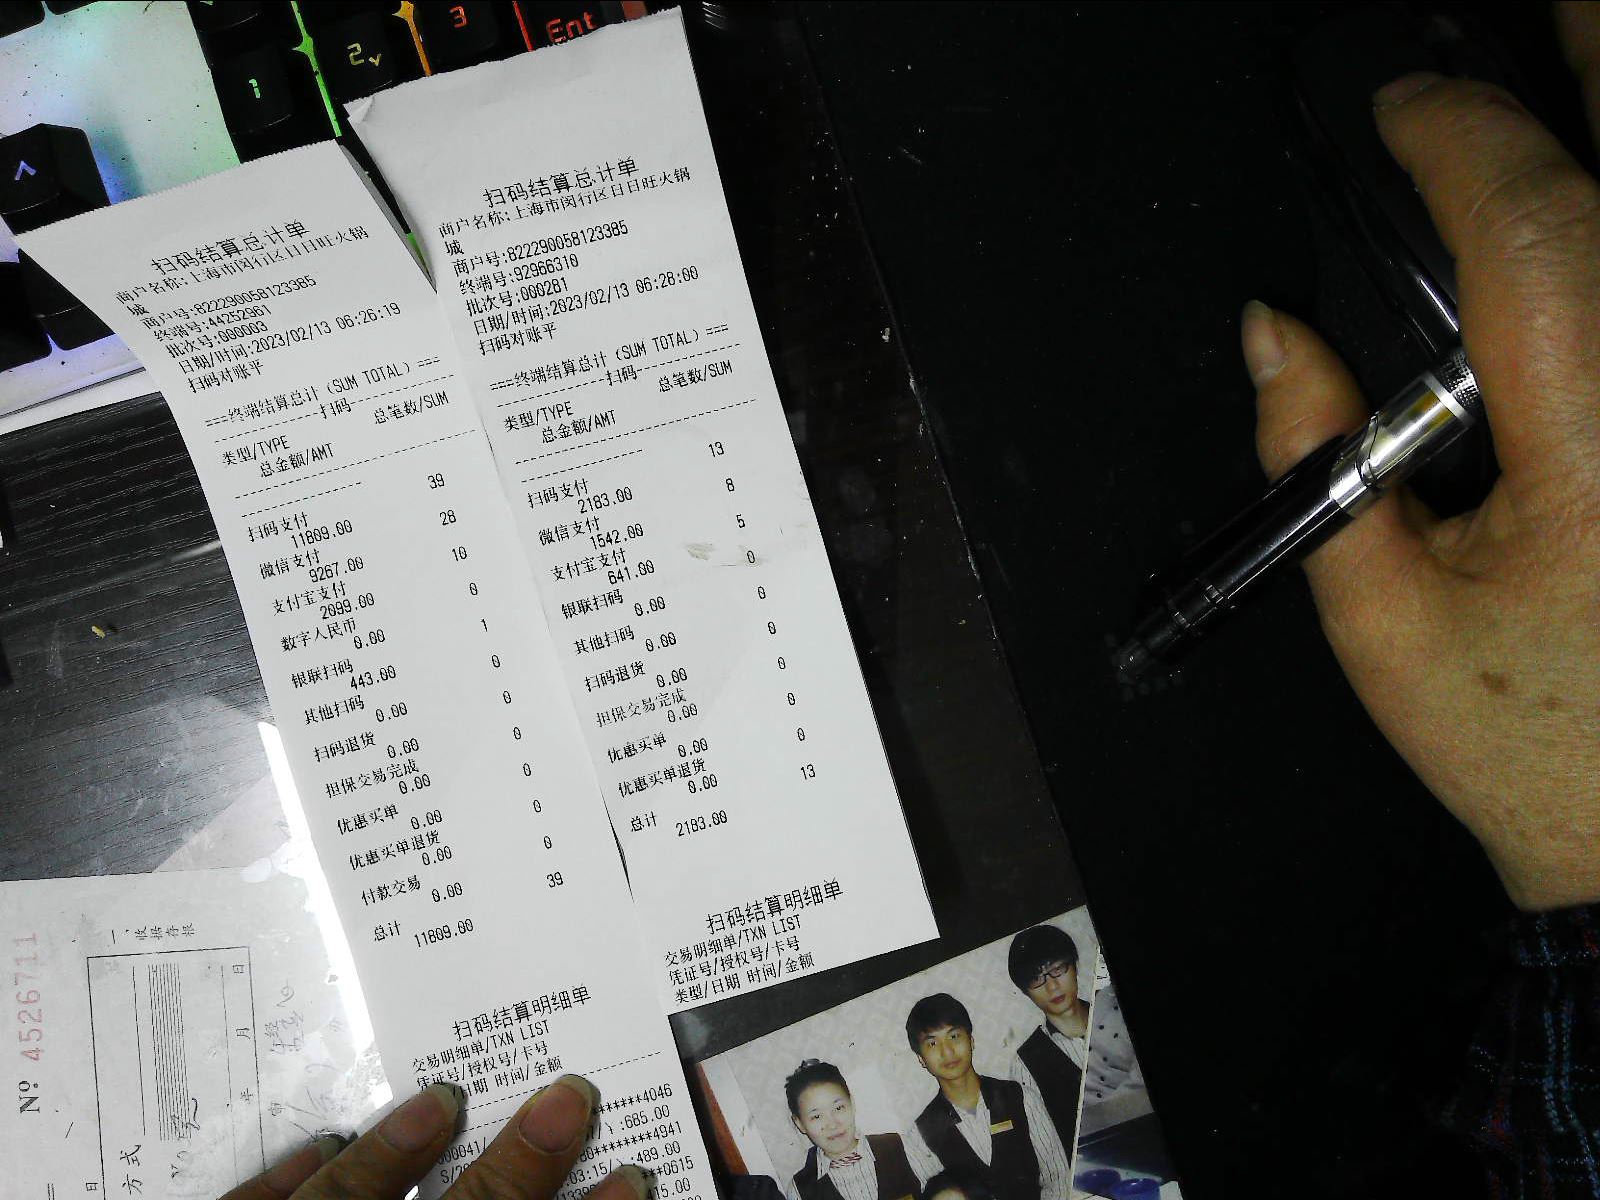 1
2
3
Ent
扫码结算总计单
商户名称:上海市闵行区日日旺火锅
城
商户号:822290058123385
终端号:44252961
批次号:000003
日期/时间:2023/02/13 06:26:19
扫码对账平
===终端结算总计(SUM TOTAL)===
--------扫码--------
类型/TYPE 总笔数/SUM
总金额/AMT
扫码支付 39
11809.00
微信支付 28
9267.00
支付宝支付 10
2099.00
数字人民币 0
0.00
银联扫码 1
443.00
其他扫码 0
0.00
扫码退货 0
0.00
担保交易完成 0
0.00
优惠买单 0
0.00
优惠买单退货 0
0.00
付款交易 0
0.00
总计 39
11809.00
扫码结算明细单
交易明细单/TXN LIST
凭证号/授权号/卡号
日期 时间/金额
*******4046
000041/
:685.00
********4941
03:15/
:489.00
**0615
扫码结算总计单
商户名称:上海市闵行区日日旺火锅
城
商户号:822290058123385
终端号:92966310
批次号:000281
日期/时间:2023/02/13 06:28:00
扫码对账平
===终端结算总计(SUM TOTAL)===
--------扫码--------
类型/TYPE 总笔数/SUM
总金额/AMT
扫码支付 13
2183.00
微信支付 8
1542.00
支付宝支付 5
641.00
银联扫码 0
0.00
其他扫码 0
0.00
扫码退货 0
0.00
担保交易完成 0
0.00
优惠买单 0
0.00
优惠买单退货 0
0.00
总计 13
2183.00
扫码结算明细单
交易明细单/TXN LIST
凭证号/授权号/卡号
类型/日期 时间/金额
一、收据存根
Nº 4526711
年 月 日
方式